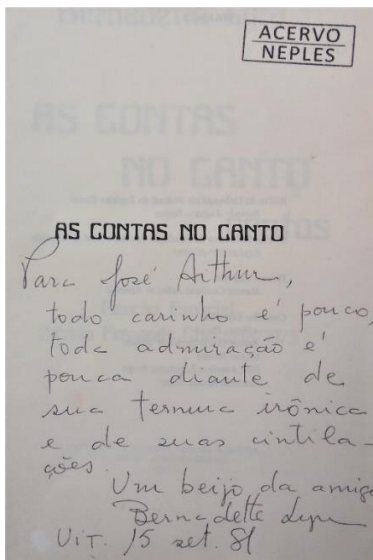 ACERVO
NEPLES
AS CONTAS
NO CANTO
AS CONTAS NO CANTO
Para José Arthur,
todo carinho é pouco,
toda admiração é
pouca diante de
sua ternura irônica
e de suas cintila-
ções.
Um beijo da amiga
Bernadette Lyra
Vit. 15 set. 81